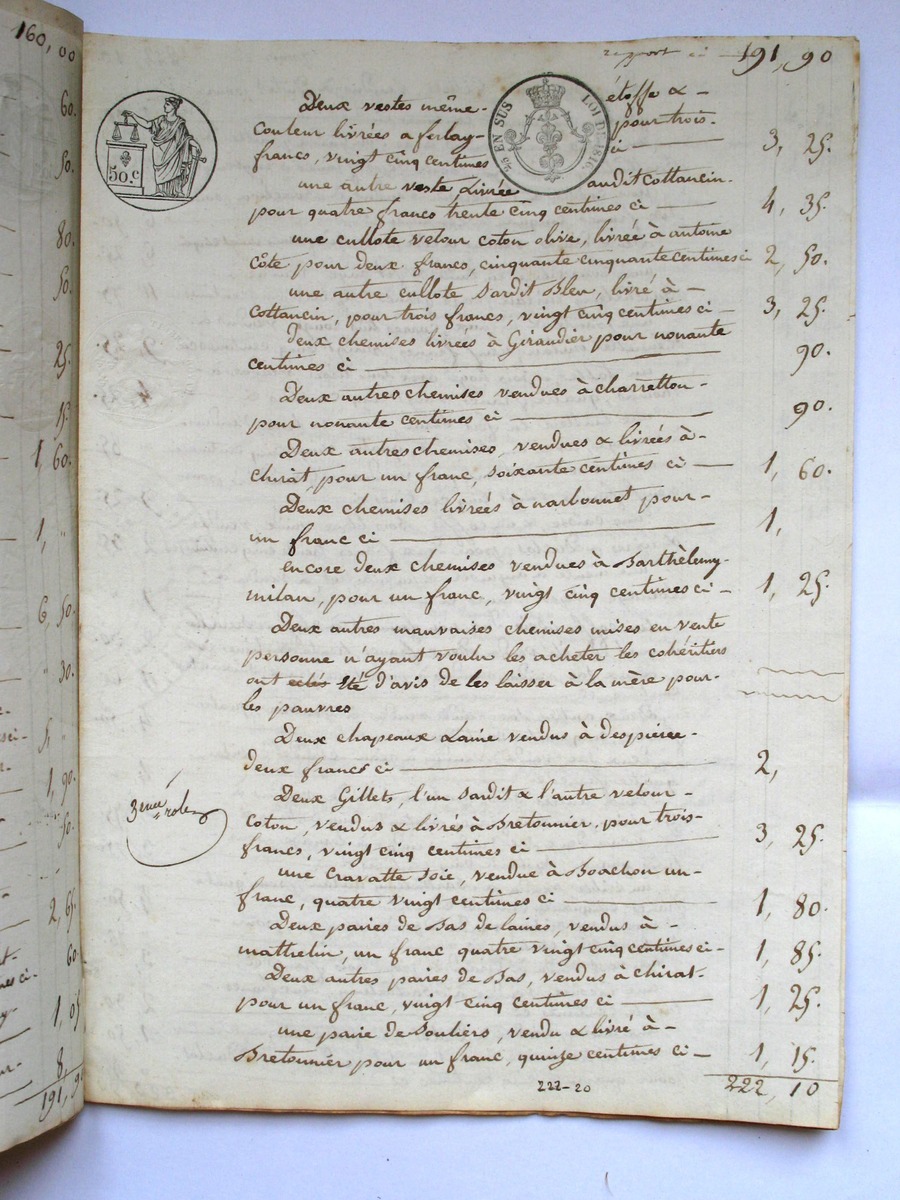 160, 00
60.
50.
80.
50.
25.
15.
1, 60.
1, "
6, 50.
" 30.
5, "
1, 90.
50.
2, 65.
60
1, 05
8,
191, 9
report ci — 191, 90
50.c
25 EN SUS LOI DE 1816.
Deux vestes même - étoffe & -
Couleur livrées a ferlay - pour trois -
francs, vingt cinq centimes ci — 3, 25.
une autre veste Livrée audit Cottancin -
pour quatre francs trente cinq centimes ci — 4, 35.
une cullote velour coton olive, livrée à antoine
Côte pour deux francs, cinquante cinquante centimes ci 2, 50.
une autre cullote Sardit Bleu, livré à -
Cottancin, pour trois francs, vingt cinq centimes ci — 3, 25.
Deux chemises livrées à Giraudier pour nonante
centimes ci — 90.
Deux autres chemises vendues à charretton -
pour nonante centimes ci — 90.
Deux autres chemises, vendues & livrées à -
chirat, pour un franc, soixante centimes ci — 1, 60.
Deux chemises livrées à narbonnet pour -
un franc ci — 1,
encore deux chemises vendues à Barthèlemy -
milan, pour un franc, vingt cinq centimes ci — 1, 25.
Deux autres mauvaises chemises mises en vente
personne n'ayant voulu les acheter les cohéritiers
ont été d'avis de les laisser à la mère pour -
les pauvres
Deux chapeaux Laine vendus à despierre -
deux francs ci — 2,
3eme role
Deux Gillets, l'un Sardit & l'autre velour -
Coton, vendus & livrés à Bretonnier, pour trois -
francs, vingt cinq centimes ci — 3, 25.
une Cravatte Soie, vendue à Boachon un -
franc, quatre vingt centimes ci — 1, 80.
Deux paires de Bas de laines, vendus à -
matthelin, un franc quatre vingt cinq centimes ci - 1, 85.
Deux autres paires de Bas, vendus à chirat -
pour un franc, vingt cinq centimes ci — 1, 25.
une paire de Souliers, vendu & livré à -
Bretonnier pour un franc, quinze centimes ci — 1, 15.
222-20 222, 10